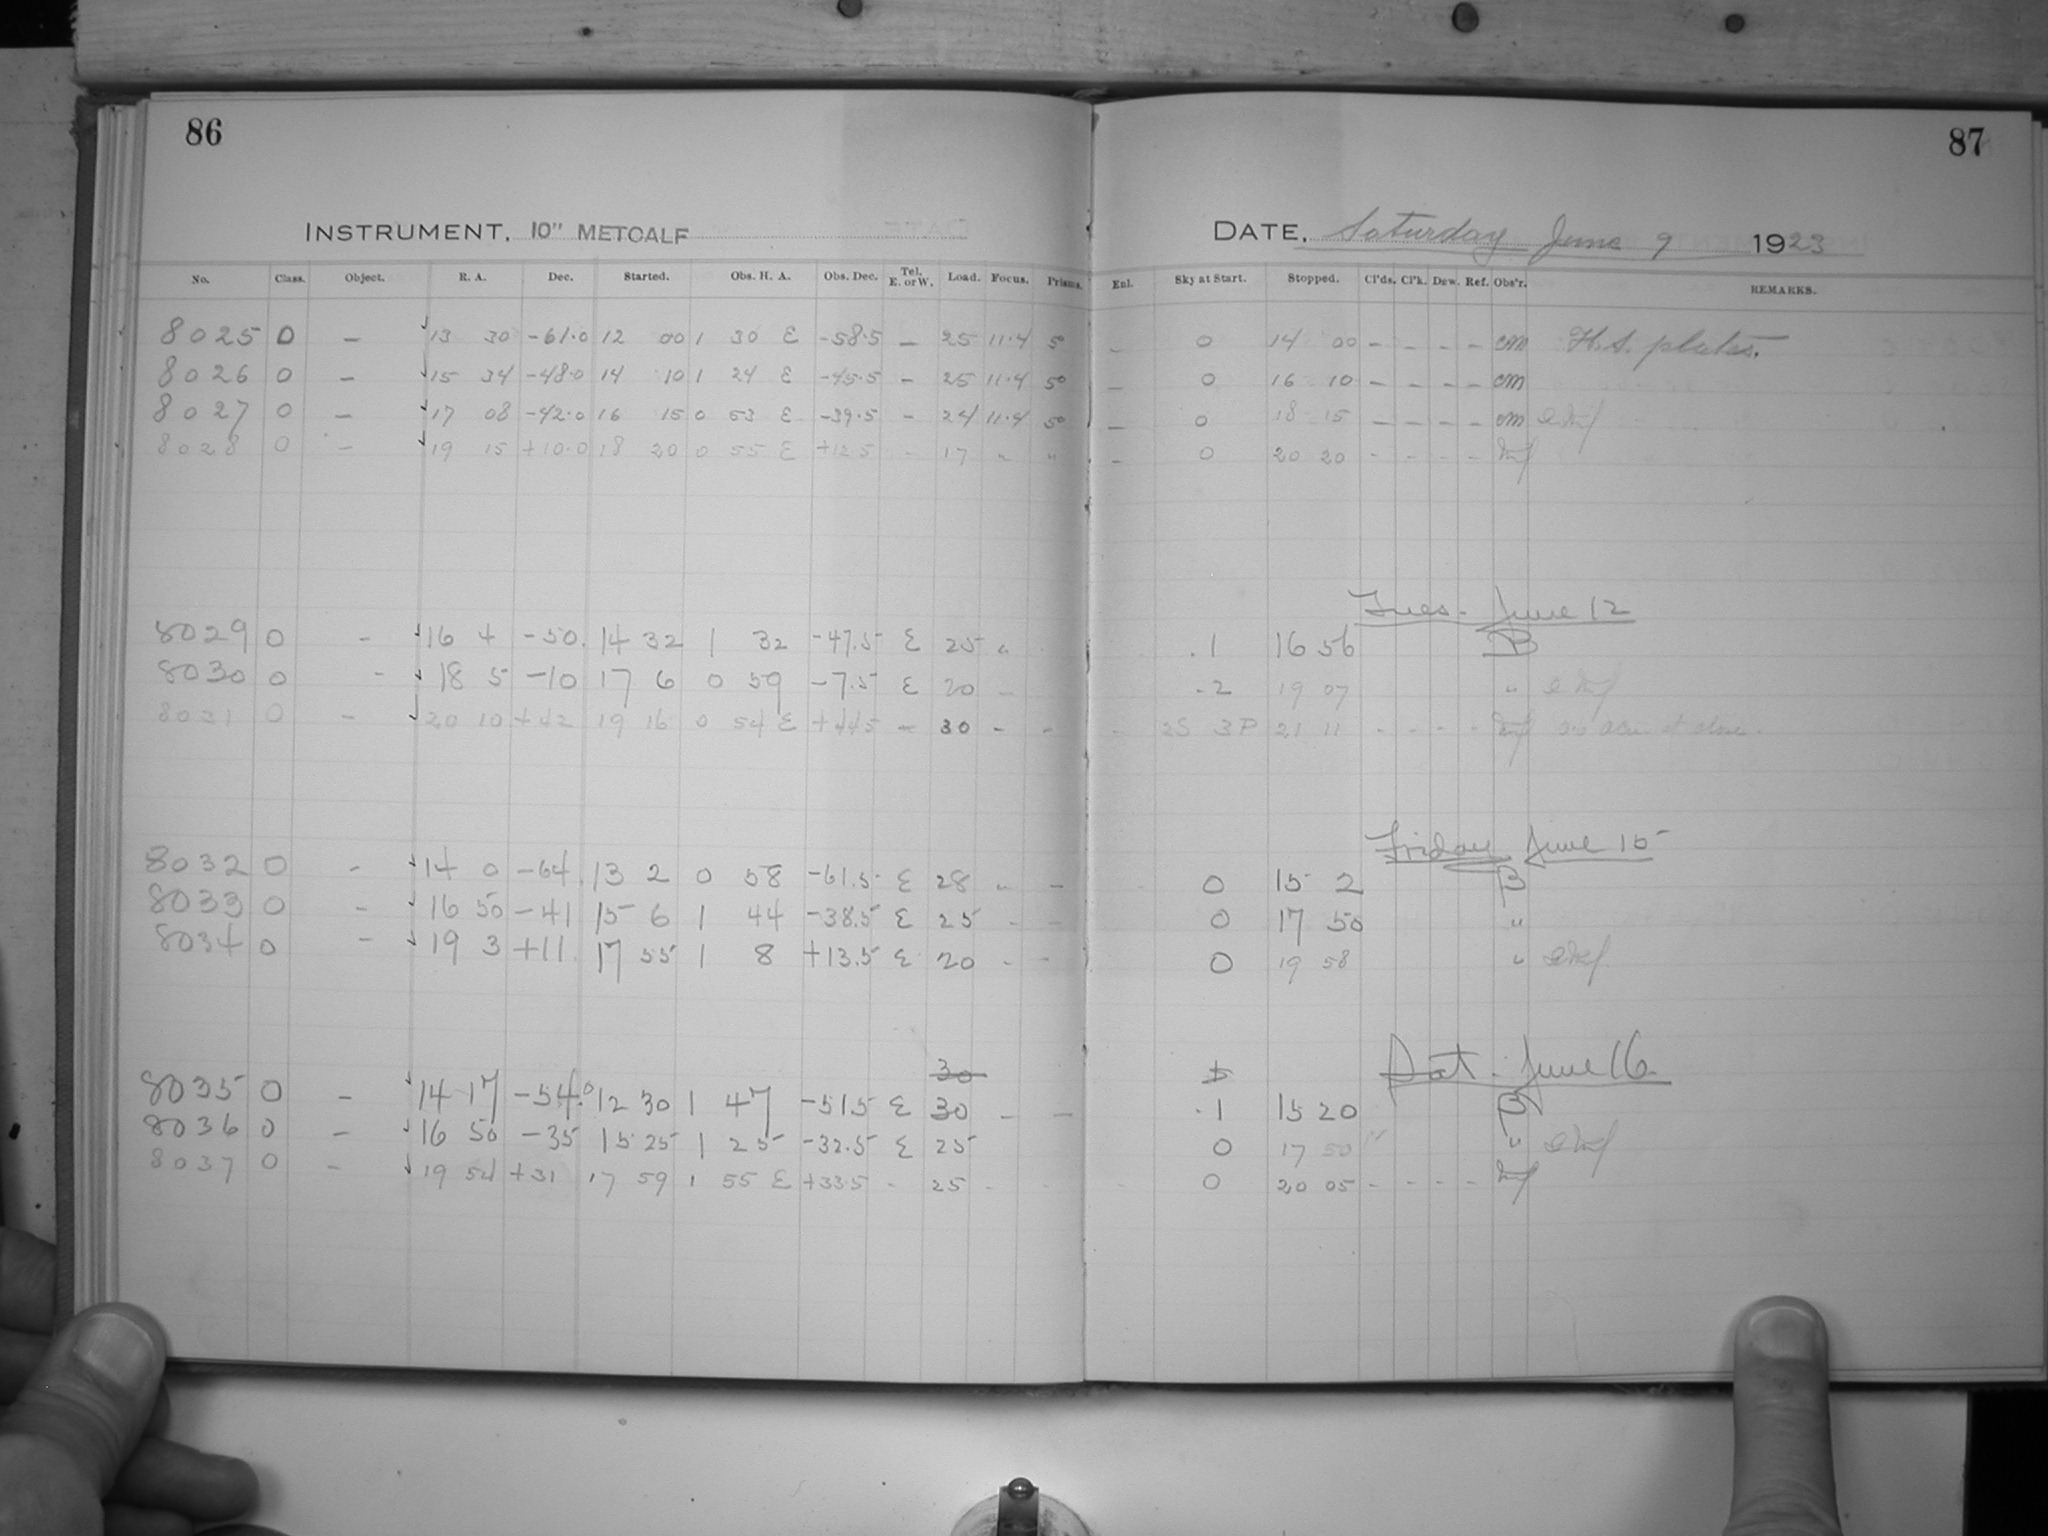 86
87
INSTRUMENT, 10" METCALF
DATE, Saturday June 9 1923
No. Class. Object. R. A. Dec. Started. Obs. H. A. Obs. Dec. Tel. E. or W. Load. Focus. Prisms. Enl. Sky at Start. Stopped. Cl'ds. Cl'k. Dew. Ref. Obs'r. REMARKS.
8025 0 – 13 30 -61.0 12 00 1 30 E -58.5 – 25 11.4 50 – 0 14 00 – – – – cm H.S. plates.
8026 0 – 15 34 -48.0 14 10 1 24 E -45.5 – 25 11.4 50 – 0 16 10 – – – – cm
8027 0 – 17 08 -42.0 16 15 0 53 E -39.5 – 24 11.4 50 – 0 18 15 – – – – cm
8028 0 – 19 15 +10.0 18 20 0 55 E +12.5 – 17 " " – 0 20 20 – – – –
Tues. June 12
8029 0 – 16 4 -50. 14 32 1 32 -47.5 E 25 " .1 16 56 B
8030 0 – 18 5 -10 17 6 0 59 -7.5 E 20 – .2 19 07 "
8031 0 – 20 10 +42 19 16 0 54 E +44.5 – 30 – – – 2S 3P 21 11 – – – – at close.
Friday June 15
8032 0 – 14 0 -64. 13 2 0 58 -61.5 E 28 – – 0 15 2 B
8033 0 – 16 50 -41 15 6 1 44 -38.5 E 25 – – 0 17 50 "
8034 0 – 19 3 +11. 17 55 1 8 +13.5 E 20 – – 0 19 58 "
Sat. June 16
30
8035 0 – 14 17 -54.0 12 30 1 47 -51.5 E 30 – – .1 15 20 B
8036 0 – 16 50 -35 15 25 1 25 -32.5 E 25 0 17 50 "
8037 0 – 19 54 +31 17 59 1 55 E +33.5 – 25 – – – 0 20 05 – – – –